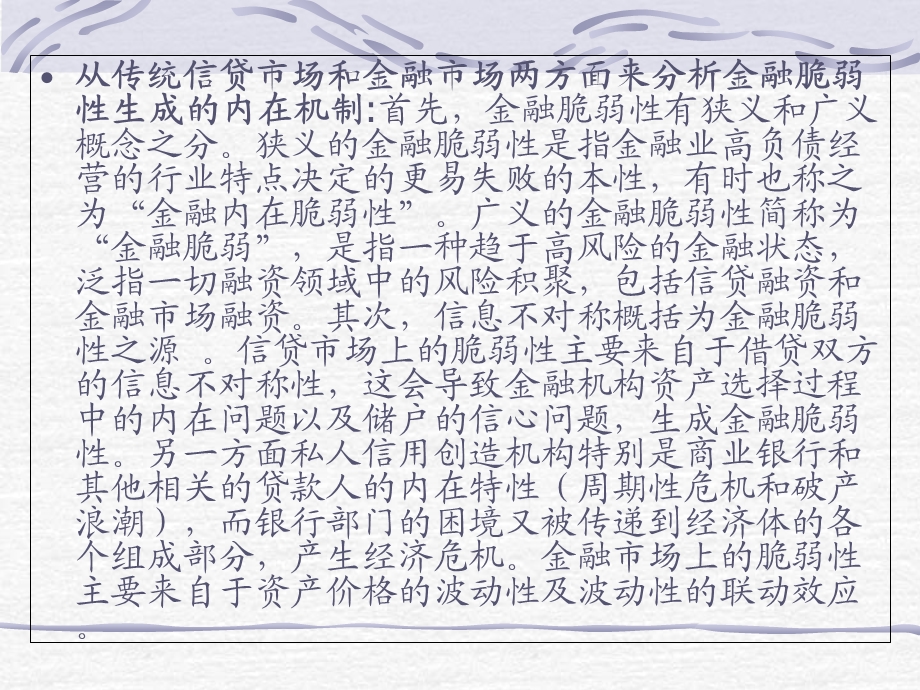 • 从传统信贷市场和金融市场两方面来分析金融脆弱
性生成的内在机制:首先，金融脆弱性有狭义和广义
概念之分。狭义的金融脆弱性是指金融业高负债经
营的行业特点决定的更易失败的本性，有时也称之
为“金融内在脆弱性”。广义的金融脆弱性简称为
“金融脆弱”，是指一种趋于高风险的金融状态，
泛指一切融资领域中的风险积聚，包括信贷融资和
金融市场融资。其次，信息不对称概括为金融脆弱
性之源 。信贷市场上的脆弱性主要来自于借贷双方
的信息不对称性，这会导致金融机构资产选择过程
中的内在问题以及储户的信心问题，生成金融脆弱
性。另一方面私人信用创造机构特别是商业银行和
其他相关的贷款人的内在特性（周期性危机和破产
浪潮），而银行部门的困境又被传递到经济体的各
个组成部分，产生经济危机。金融市场上的脆弱性
主要来自于资产价格的波动性及波动性的联动效应
。